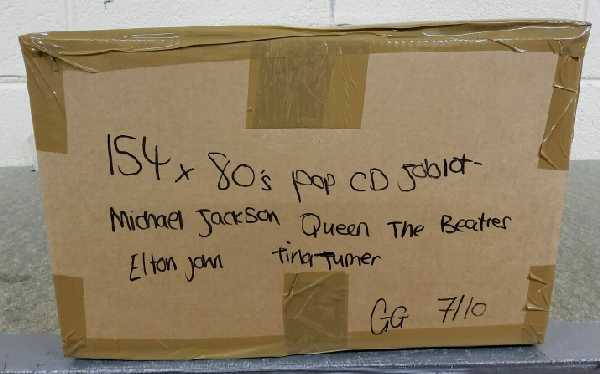 154 x 80's pop CD Joblot
Michael Jackson Queen The Beatles
Elton John Tina Turner
GG 7/10